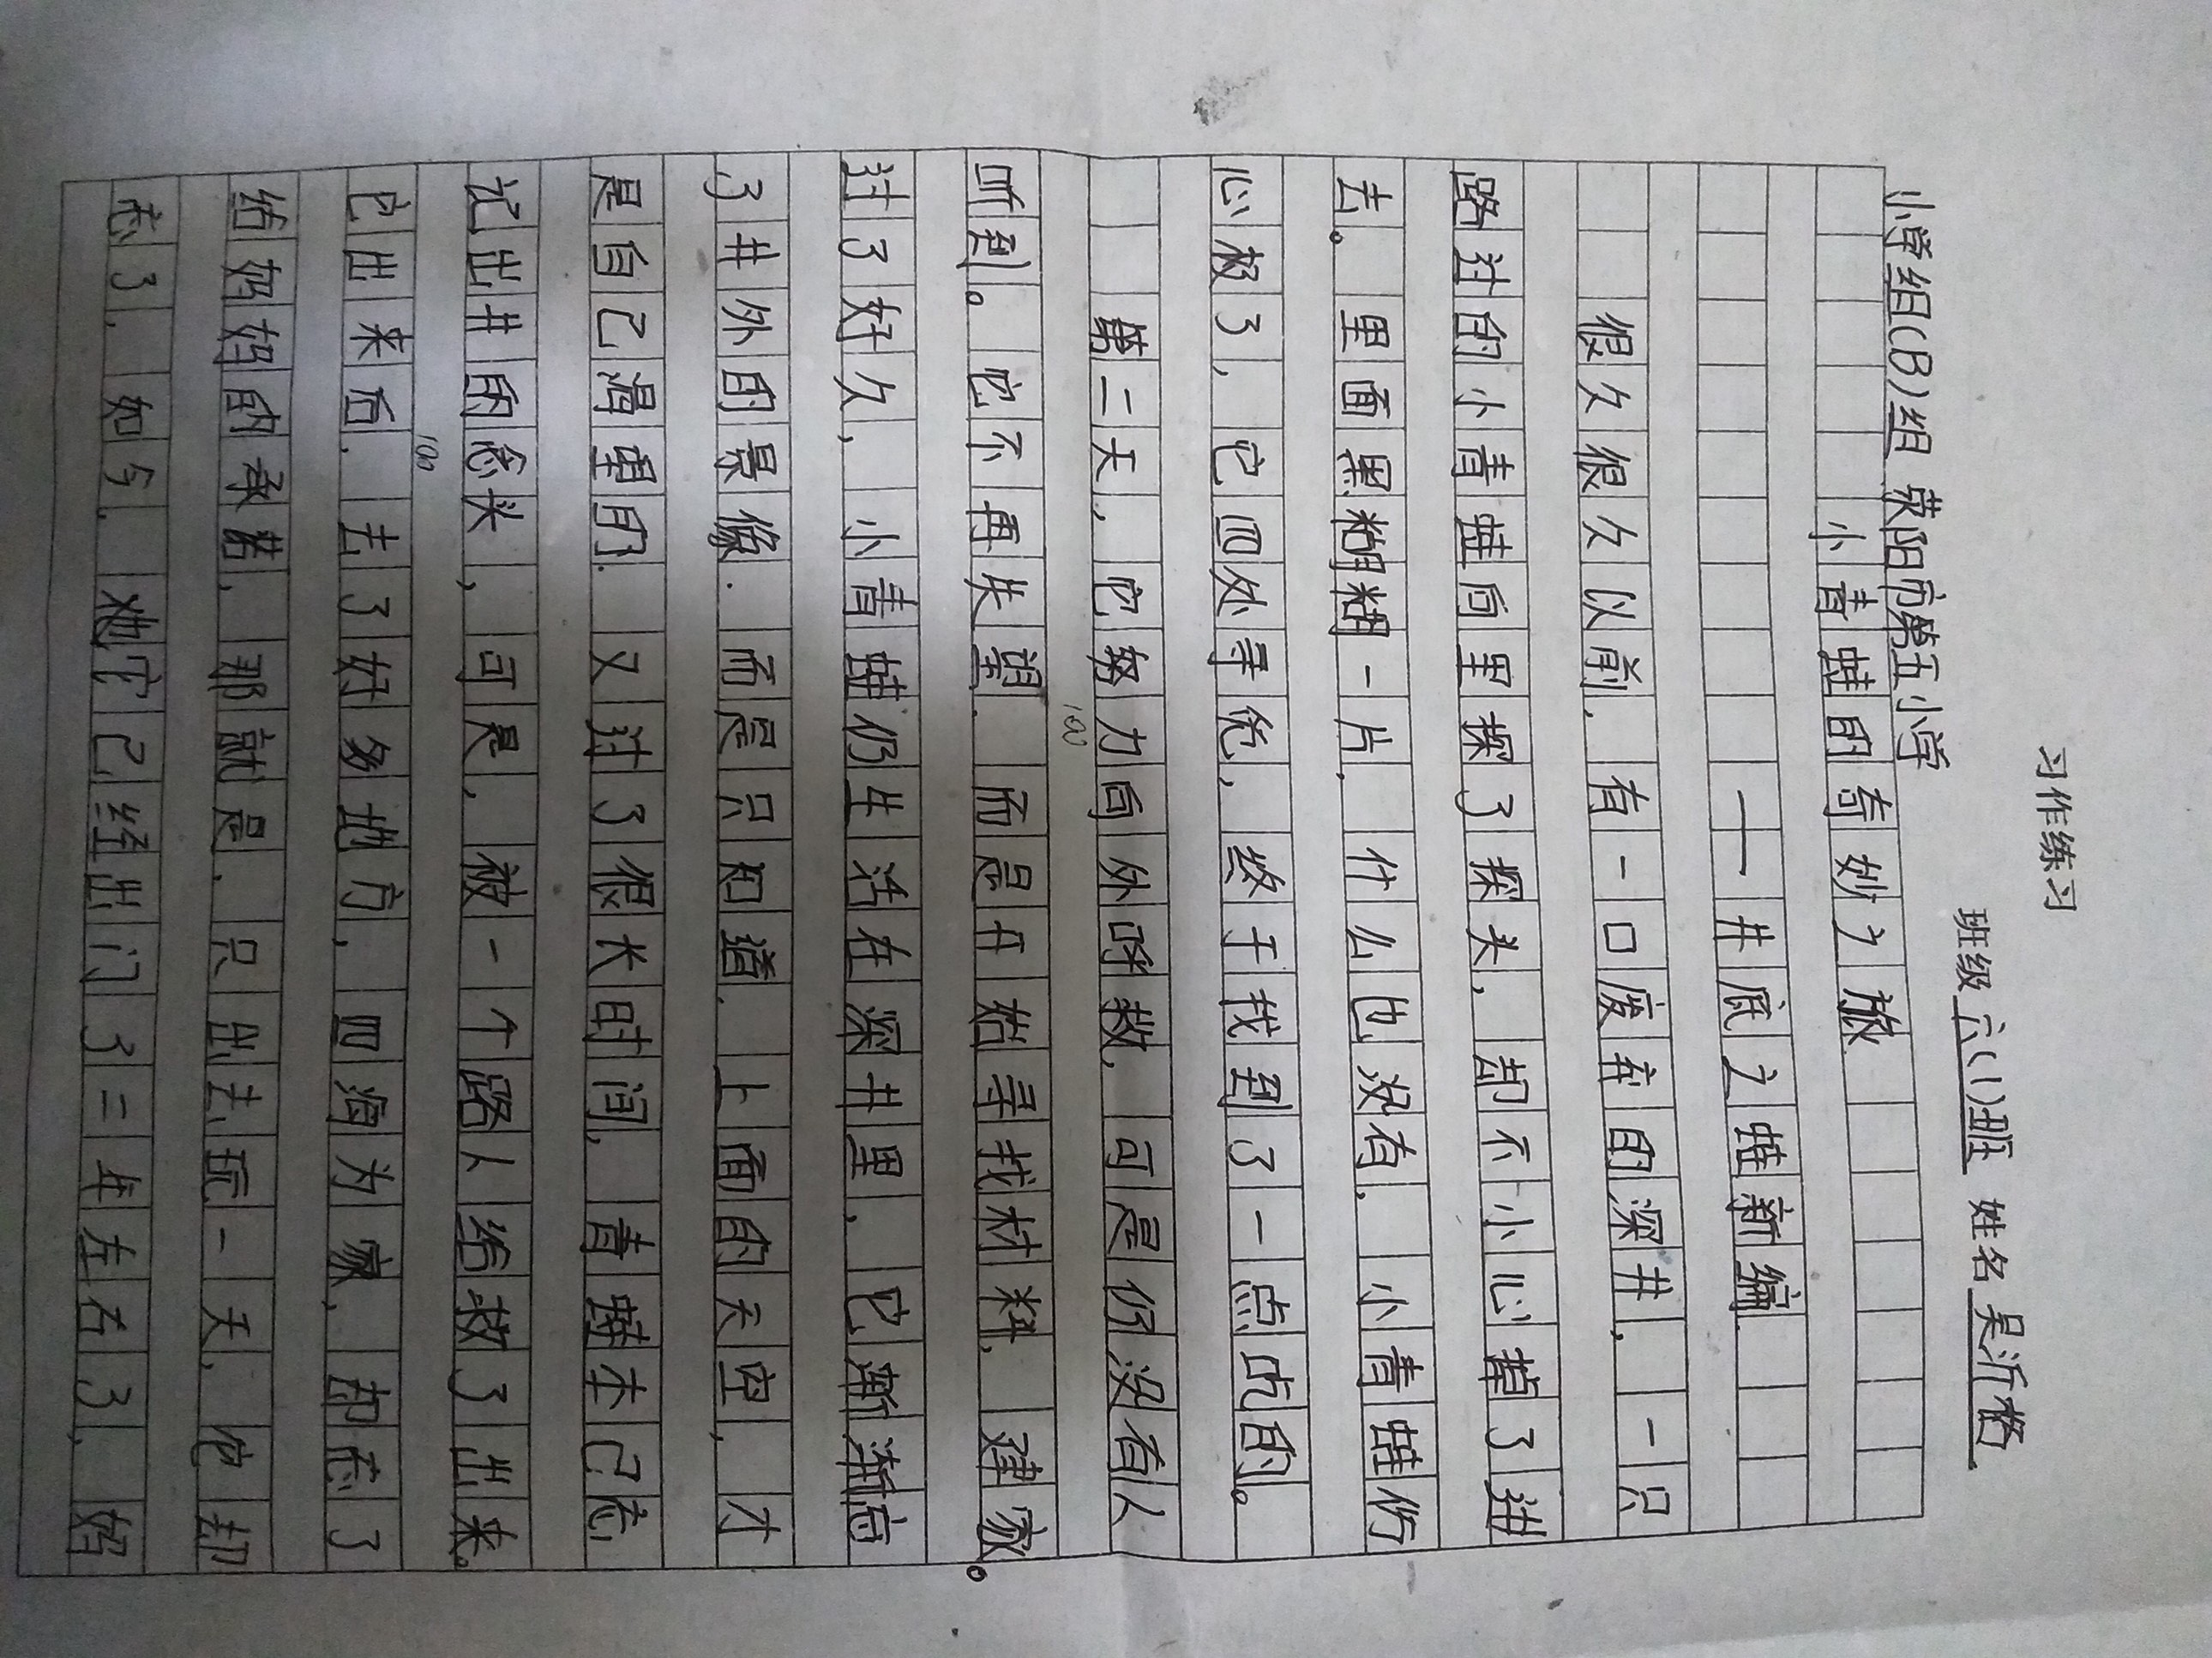 习作练习
小学组(B)组 荥阳市第五小学 班级 六(1)班 姓名 吴沂
小青蛙的奇妙之旅
——井底之蛙新编
很久很久以前，有一口废弃的深井，一只
路过的小青蛙向里探了探头，却不小心掉了进
去。里面黑糊糊一片，什么也没有，小青蛙伤
心极了，它四处寻觅，终于找到了一点吃的。
第二天，它努力向外呼救，可是仍没有人
听到。它不再失望，而是开始寻找材料，建家。
过了好久，小青蛙仍生活在深井里，它渐渐忘
了井外的景像，而是只知道，上面的天空，才
是自己渴望的，又过了很长时间，青蛙本已忘
记出井的念头，可是，被一个路人给救了出来。
100
它出来后，去了好多地方，四海为家，却忘了
给妈妈的承诺，那就是，只出去玩一天，他却
忘了，如今，她它已经出门了二年左右了，妈
100